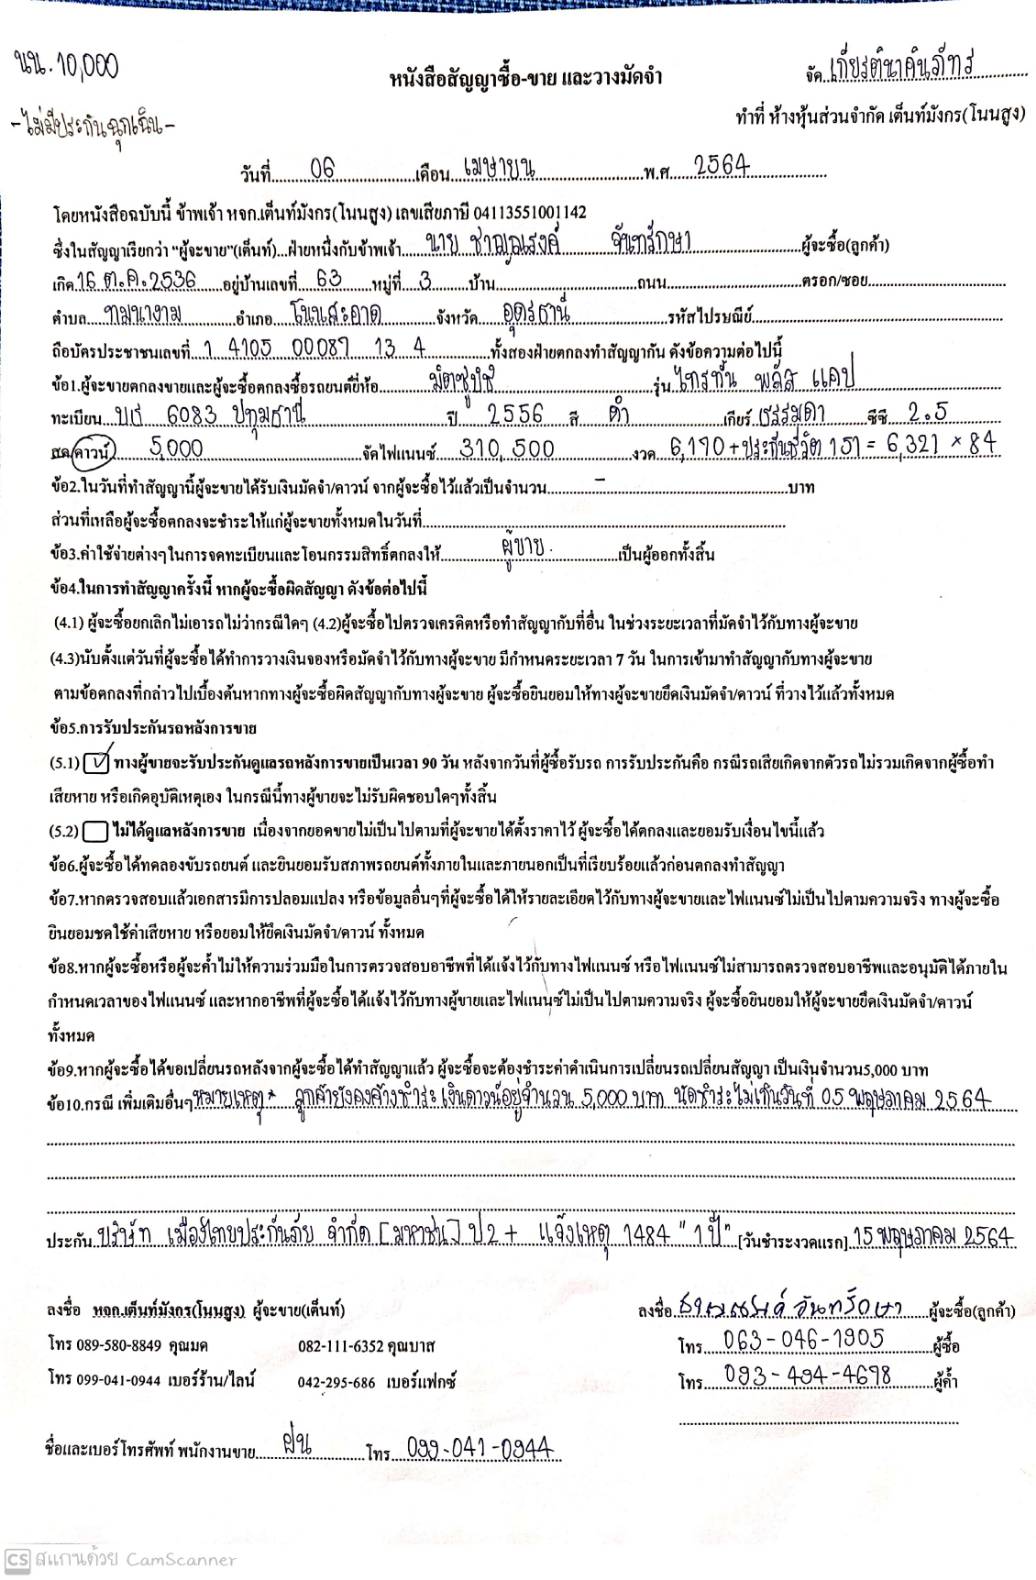 นน. 10,000
หนังสือสัญญาซื้อ-ขาย และวางมัดจำ
จัด เกียรตินาคินภัทร
-ไม่มีประกันฉุกเฉิน-
ทำที่ ห้างหุ้นส่วนจำกัด เต็นท์มังกร(โนนสูง)
วันที่ 06 เดือน เมษายน พ.ศ. 2564
โดยหนังสือฉบับนี้ ข้าพเจ้า หจก.เต็นท์มังกร(โนนสูง) เลขเสียภาษี 04113551001142
ซึ่งในสัญญาเรียกว่า “ผู้จะขาย”(เต็นท์)...ฝ่ายหนึ่งกับข้าพเจ้า นาย ชาญณรงค์ จันทรักษา ผู้จะซื้อ(ลูกค้า)
เกิด 16 ต.ค.2536 อยู่บ้านเลขที่ 63 หมู่ที่ 3 บ้าน ถนน ตรอก/ซอย
ตำบล ทมนางาม อำเภอ โนนสะอาด จังหวัด อุดรธานี รหัสไปรษณีย์
ถือบัตรประชาชนเลขที่ 1 4105 00089 13 4 ทั้งสองฝ่ายตกลงทำสัญญากัน ดังข้อความต่อไปนี้
ข้อ1.ผู้จะขายตกลงขายและผู้จะซื้อตกลงซื้อรถยนต์ยี่ห้อ มิตซูบิชิ รุ่น ไทรทัน พลัส แคป
ทะเบียน บร 6083 ปทุมธานี ปี 2556 สี ดำ เกียร์ ธรรมดา ซีซี 2.5
สด/ดาวน์ 5,000 จัดไฟแนนซ์ 310,500 งวด 6,170 + ประกันชีวิต 151 = 6,321 × 84
ข้อ2.ในวันที่ทำสัญญานี้ผู้จะขายได้รับเงินมัดจำ/ดาวน์ จากผู้จะซื้อไว้แล้วเป็นจำนวน - บาท
ส่วนที่เหลือผู้จะซื้อตกลงจะชำระให้แก่ผู้จะขายทั้งหมดในวันที่
ข้อ3.ค่าใช้จ่ายต่างๆในการจดทะเบียนและโอนกรรมสิทธิ์ตกลงให้ ผู้ขาย. เป็นผู้ออกทั้งสิ้น
ข้อ4.ในการทำสัญญาครั้งนี้ หากผู้จะซื้อผิดสัญญา ดังข้อต่อไปนี้
(4.1) ผู้จะซื้อยกเลิกไม่เอารถไม่ว่ากรณีใดๆ (4.2)ผู้จะซื้อไปตรวจเครดิตหรือทำสัญญากับที่อื่น ในช่วงระยะเวลาที่มัดจำไว้กับทางผู้จะขาย
(4.3)นับตั้งแต่วันที่ผู้จะซื้อได้ทำการวางเงินจองหรือมัดจำไว้กับทางผู้จะขาย มีกำหนดระยะเวลา 7 วัน ในการเข้ามาทำสัญญากับทางผู้จะขาย
ตามข้อตกลงที่กล่าวไปเบื้องต้นหากทางผู้จะซื้อผิดสัญญากับทางผู้จะขาย ผู้จะซื้อยินยอมให้ทางผู้จะขายยึดเงินมัดจำ/ดาวน์ ที่วางไว้แล้วทั้งหมด
ข้อ5.การรับประกันรถหลังการขาย
(5.1) ทางผู้ขายจะรับประกันดูแลรถหลังการขายเป็นเวลา 90 วัน หลังจากวันที่ผู้ซื้อรับรถ การรับประกันคือ กรณีรถเสียเกิดจากตัวรถไม่รวมเกิดจากผู้ซื้อทำ
เสียหาย หรือเกิดอุบัติเหตุเอง ในกรณีนี้ทางผู้ขายจะไม่รับผิดชอบใดๆทั้งสิ้น
(5.2) ไม่ได้ดูแลหลังการขาย เนื่องจากยอดขายไม่เป็นไปตามที่ผู้จะขายได้ตั้งราคาไว้ ผู้จะซื้อได้ตกลงและยอมรับเงื่อนไขนี้แล้ว
ข้อ6.ผู้จะซื้อได้ทดลองขับรถยนต์ และยินยอมรับสภาพรถยนต์ทั้งภายในและภายนอกเป็นที่เรียบร้อยแล้วก่อนตกลงทำสัญญา
ข้อ7.หากตรวจสอบแล้วเอกสารมีการปลอมแปลง หรือข้อมูลอื่นๆที่ผู้จะซื้อได้ให้รายละเอียดไว้กับทางผู้จะขายและไฟแนนซ์ไม่เป็นไปตามความจริง ทางผู้จะซื้อ
ยินยอมชดใช้ค่าเสียหาย หรือยอมให้ยึดเงินมัดจำ/ดาวน์ ทั้งหมด
ข้อ8.หากผู้จะซื้อหรือผู้จะค้ำไม่ให้ความร่วมมือในการตรวจสอบอาชีพที่ได้แจ้งไว้กับทางไฟแนนซ์ หรือไฟแนนซ์ไม่สามารถตรวจสอบอาชีพและอนุมัติได้ภายใน
กำหนดเวลาของไฟแนนซ์ และหากอาชีพที่ผู้จะซื้อได้แจ้งไว้กับทางผู้ขายและไฟแนนซ์ไม่เป็นไปตามความจริง ผู้จะซื้อยินยอมให้ผู้จะขายยึดเงินมัดจำ/ดาวน์
ทั้งหมด
ข้อ9.หากผู้จะซื้อได้ขอเปลี่ยนรถหลังจากผู้จะซื้อได้ทำสัญญาแล้ว ผู้จะซื้อจะต้องชำระค่าดำเนินการเปลี่ยนรถเปลี่ยนสัญญา เป็นเงินจำนวน5,000 บาท
ข้อ10.กรณี เพิ่มเติมอื่นๆ หมายเหตุ* ลูกค้ายังคงค้างชำระ เงินดาวน์อยู่จำนวน 5,000 บาท นัดชำระไม่เกินวันที่ 05 พฤษภาคม 2564
ประกัน บริษัท เมืองไทยประกันภัย จำกัด [มหาชน] ป2+ แจ้งเหตุ 1484 "1 ปี" [วันชำระงวดแรก] 15 พฤษภาคม 2564
ลงชื่อ หจก.เต็นท์มังกร(โนนสูง) ผู้จะขาย(เต็นท์) ลงชื่อ ชาญณรงค์ จันทรักษา ผู้จะซื้อ(ลูกค้า)
โทร 089-580-8849 คุณมด 082-111-6352 คุณบาส โทร 063-046-1905 ผู้ซื้อ
โทร 099-041-0944 เบอร์ร้าน/ไลน์ 042-295-686 เบอร์แฟกซ์ โทร 093-494-4698 ผู้ค้ำ
ชื่อและเบอร์โทรศัพท์ พนักงานขาย ฝน โทร 099-041-0944
CS สแกนด้วย CamScanner